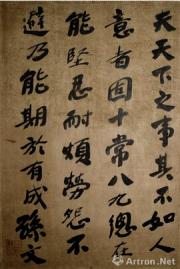 夫天下之事其不如人
意者固十常八九總在
能堅忍耐煩勞怨不
避乃能期於有成孫文
Artron.Net